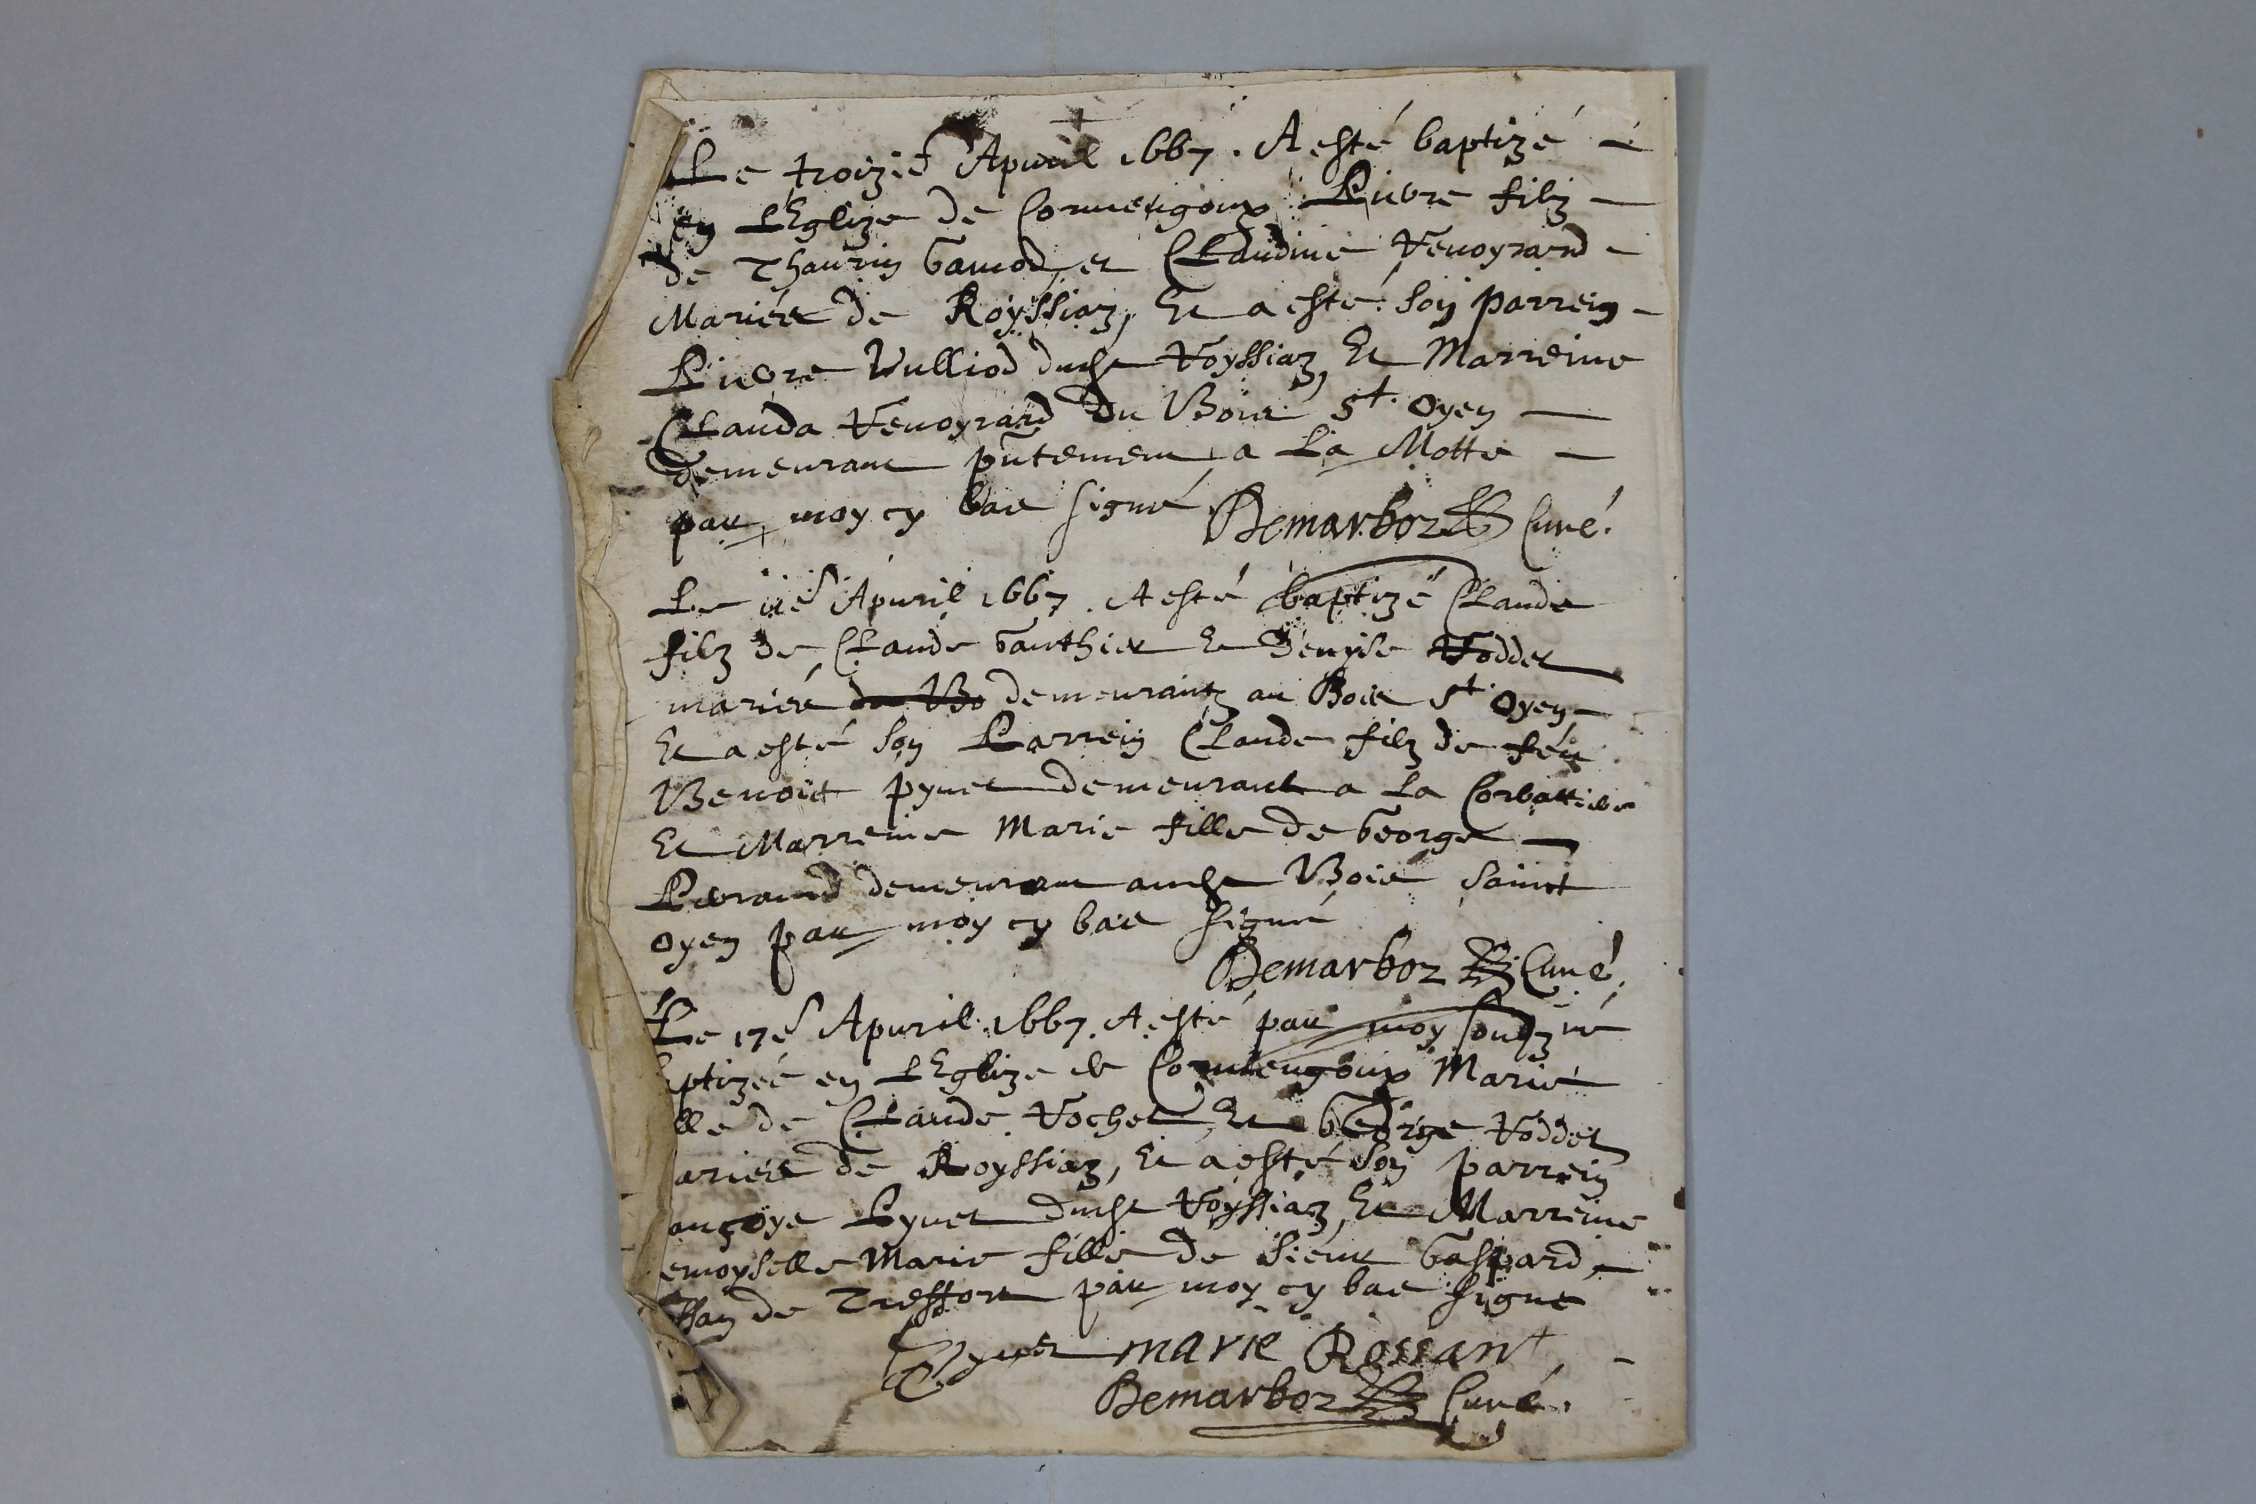 Le troizie Apuril 1667. A esté baptizé
en LEglize de Cormengoux Pierre filz
de Thaurin Gamod, et Claudine Venoyrard
Mariés de Royssiaz, Et a esté son parrein
Pierre Vulliod dud Royssiaz, Et Marreine
Clauda Venoyrard du Bois St. Oyen
demeurant pntement a La Motte
par moy cy bas signé Demarboz Curé.
Le 11e Apuril 1667. A esté baptizé Claude
filz de Claude Gauthier Et Denyse Voddet
mariés du Bo demeurantz au Bois St Oyen
Et a esté son Parrein Claude filz de feu
Benoict pyuet demeurant a la
Et Marreine Marie fille de George
demeurant aud Bois Sainct
Oyen par moy cy bas signé
Demarboz Curé.
Le 17e Apuril 1667. A esté par moy soubzné
ptizée en LEglize de Cormengoux Marie
lle de Claude Vochet, Et George Voddet
ariés de Royssiaz, Et a esté son parrein
ançoys Pyuet dud Royssiaz, Et Marreine
emoyselle Marie fille de Sieur Gaspard
ssan de Treffort par moy cy bas signé
Pyuet marie Rossan
Demarboz Curé.